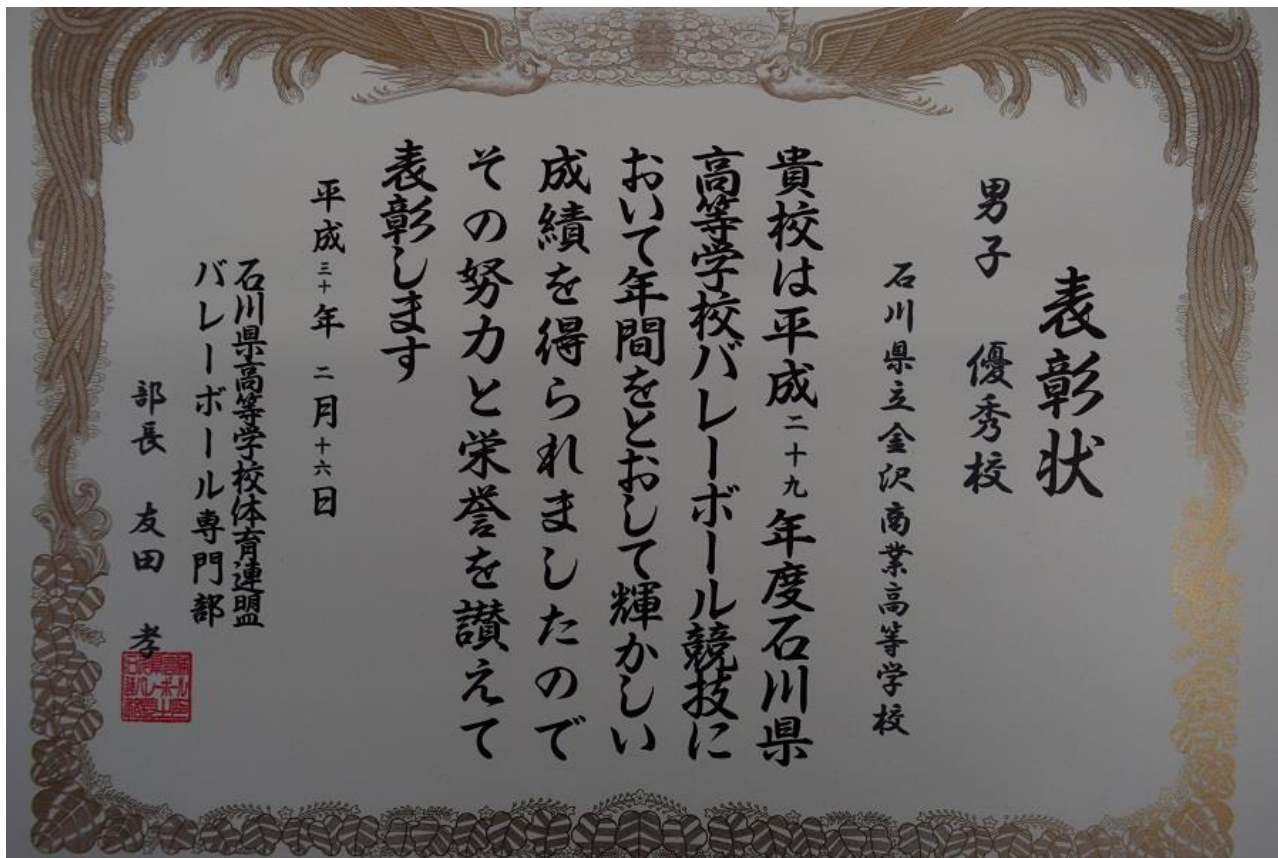 表彰状
男子 優秀校
石川県立金沢商業高等学校
貴校は平成二十九年度石川県
高等学校バレーボール競技に
おいて年間をとおして輝かしい
成績を得られましたので
その努力と栄誉を讃えて
表彰します
平成三十年 二月十六日
石川県高等学校体育連盟
バレーボール専門部
部長 友田 孝